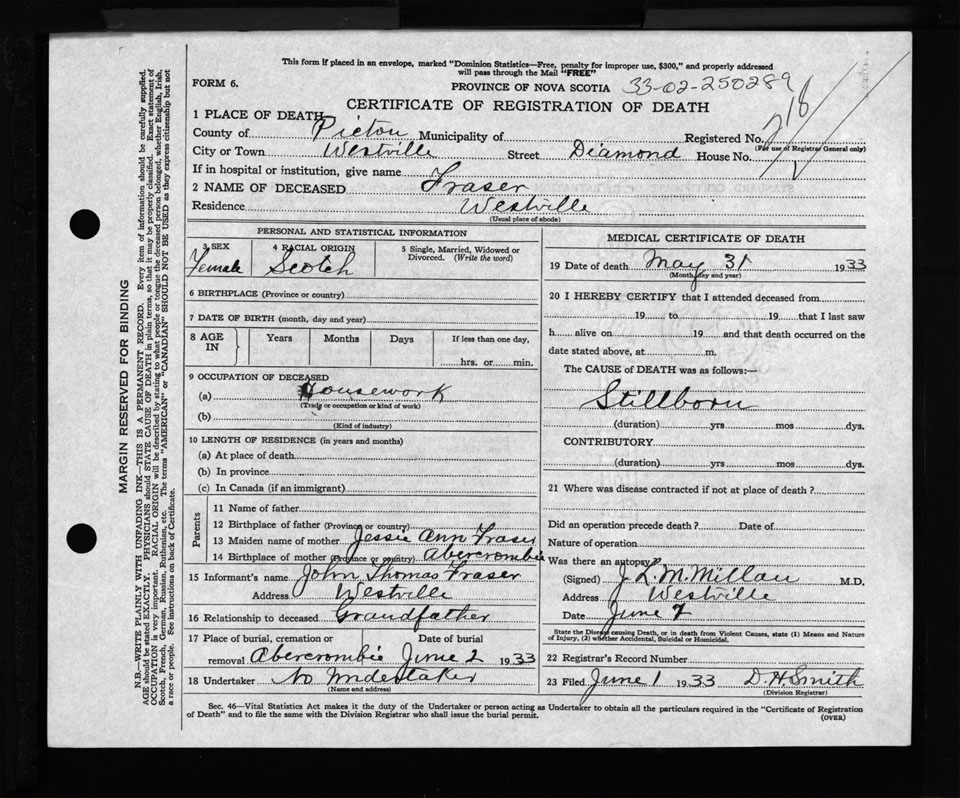 This form if placed in an envelope, marked "Dominion Statistics—Free, penalty for improper use, $300," and properly addressed
will pass through the Mail "FREE"
FORM 6.
PROVINCE OF NOVA SCOTIA 33-02-250289
CERTIFICATE OF REGISTRATION OF DEATH
718
1 PLACE OF DEATH
County of Pictou Municipality of Registered No.
(For use of Registrar General only)
City or Town Westville Street Diamond House No.
If in hospital or institution, give name
2 NAME OF DECEASED Fraser
Residence Westville
(Usual place of abode)
PERSONAL AND STATISTICAL INFORMATION
3 SEX 4 RACIAL ORIGIN 5 Single, Married, Widowed or
Divorced. (Write the word)
Female Scotch
6 BIRTHPLACE (Province or country)
7 DATE OF BIRTH (month, day and year)
8 AGE
IN
Years Months Days If less than one day,
hrs. or min.
9 OCCUPATION OF DECEASED
(a) Housework
(Trade or occupation or kind of work)
(b)
(Kind of industry)
10 LENGTH OF RESIDENCE (in years and months)
(a) At place of death
(b) In province
(c) In Canada (if an immigrant)
Parents
11 Name of father
12 Birthplace of father (Province or country)
13 Maiden name of mother Jessie Ann Fraser
14 Birthplace of mother (Province or country) Abercrombie
15 Informant's name John Thomas Fraser
Address Westville
16 Relationship to deceased Grandfather
17 Place of burial, cremation or Date of burial
removal Abercrombie June 2 1933
18 Undertaker No Undertaker
(Name and address)
MEDICAL CERTIFICATE OF DEATH
19 Date of death May 31 1933
(Month, day and year)
20 I HEREBY CERTIFY that I attended deceased from
19 to 19 that I last saw
h alive on 19 and that death occurred on the
date stated above, at m.
The CAUSE of DEATH was as follows:—
Stillborn
(duration) yrs mos dys.
CONTRIBUTORY
(duration) yrs mos dys.
21 Where was disease contracted if not at place of death?
Did an operation precede death? Date of
Nature of operation
Was there an autopsy?
(Signed) J. L. McMillan M.D.
Address Westville
Date June
State the Disease causing Death, or in death from Violent Causes, state (1) Means and Nature
of Injury, (2) whether Accidental, Suicidal or Homicidal.
22 Registrar's Record Number
23 Filed June 1 1933 D. H. Smith
(Division Registrar)
Sec. 46—Vital Statistics Act makes it the duty of the Undertaker or person acting as Undertaker to obtain all the particulars required in the "Certificate of Registration
of Death" and to file the same with the Division Registrar who shall issue the burial permit.
(OVER)
MARGIN RESERVED FOR BINDING
N.B.—WRITE PLAINLY WITH UNFADING INK—THIS IS A PERMANENT RECORD. Every item of information should be carefully supplied.
AGE should be stated EXACTLY. PHYSICIANS should STATE CAUSE OF DEATH in plain terms, so that it may be properly classified. Exact statement of
OCCUPATION is very important. RACIAL ORIGIN will be described by stating to what people or tongue the deceased person belonged, whether English, Irish,
Scotch, French, German, Russian, Ruthenian, etc. The terms "AMERICAN" or "CANADIAN" SHOULD NOT BE USED as they express citizenship but not
a race or people. See instructions on back of Certificate.